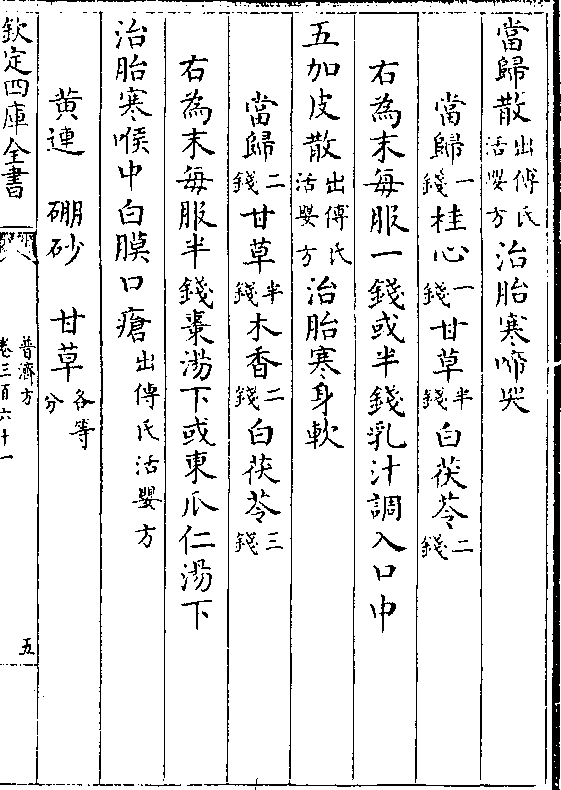 當歸散出傅氏活嬰方治胎寒啼哭
當歸一錢桂心一錢甘草半錢白茯苓二錢
右為末每服一錢或半錢乳汁調入口中
五加皮散出傅氏活嬰方治胎寒身軟
當歸二錢甘草半錢木香二錢白茯苓三錢
右為末每服半錢棗湯下或東瓜仁湯下
治胎寒喉中白膜口瘡出傅氏活嬰方
黄連 硼砂 甘草各等分
欽定四庫全書
普濟方
卷三百六十一
五